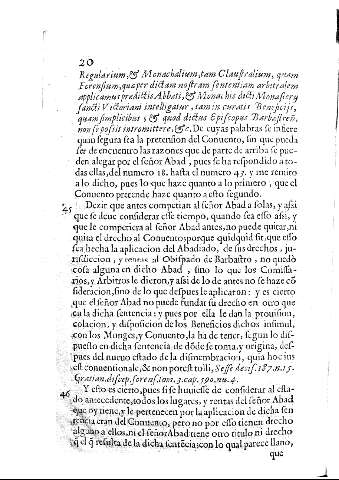 20
Regularium, & Monachalium, tam Claustralium, quam
Forensium, quæ per dictam nostram sententiam arbitralem
applicamus prædictis Abbati, & Monachis dicti Monasterij
sancti Victoriani intelligatur, tam in curatis Beneficijs,
quam simplicibus; & quod dictus Episcopus Barbastreñ,
non se possit intromittere, &c. De cuyas palabras se infiere
quan segura sea la pretension del Conuento, sin que pueda
ser de encuentro las razones que de parte de arriba se pue-
den alegar por el señor Abad, pues se ha respondido a to-
das ellas, del numero 18. hasta el numero 43. y me remito
a lo dicho, pues lo que haze quanto a lo primero, que el
Conuento pretende haze quanto a esto segundo.
45 Dezir que antes competian al señor Abad a solas, y assi
que se deue considerar esse tiempo, quando sea esso assi, y
que le competiera al señor Abad antes, no puede quitar, ni
quita el drecho al Conuento; porque quidquid sit, que esto
sea hecha la aplicacion del Abadiado, de sus drechos, ju-
risdiccion, y rentas al Obispado de Barbastro, no quedò
cosa alguna en dicho Abad, sino lo que los Comissa-
rios, y Arbitros le dieron, y assi de lo de antes no se haze cõ
sideracion, sino de lo que despues le aplicaron: y es cierto
que el señor Abad no puede fundar su drecho en otro que
en la dicha sentencia: y pues por ella le dan la prouision,
colacion, y disposicion de los Beneficios dichos insimul,
con los Monges, y Conuento, la ha de tener, segun lo dis-
puesto en dicha sentencia de dõde se toma, y origina, des-
pues del nueuo estado de la dismembracion, quia hoc ius
est conuentionale, & non potest tolli, Sesse decis. 187. n. 15.
Gratian. discep. forens. tom. 3. cap. 590. nu. 4.
46 Y esto es cierto, pues si se huuiesse de considerar al esta-
do antecedente, todos los lugares, y rentas del señor Abad
que oy tiene, y le pertenecen por la aplicacion de dicha sen
tencia eran del Conuento, pero no por esso tienen drecho
alguno a ellos, ni el señor Abad tiene otro titulo ni drecho
q̃ el q̃ resulta de la dicha sentẽcia; con lo qual parece llano,
que